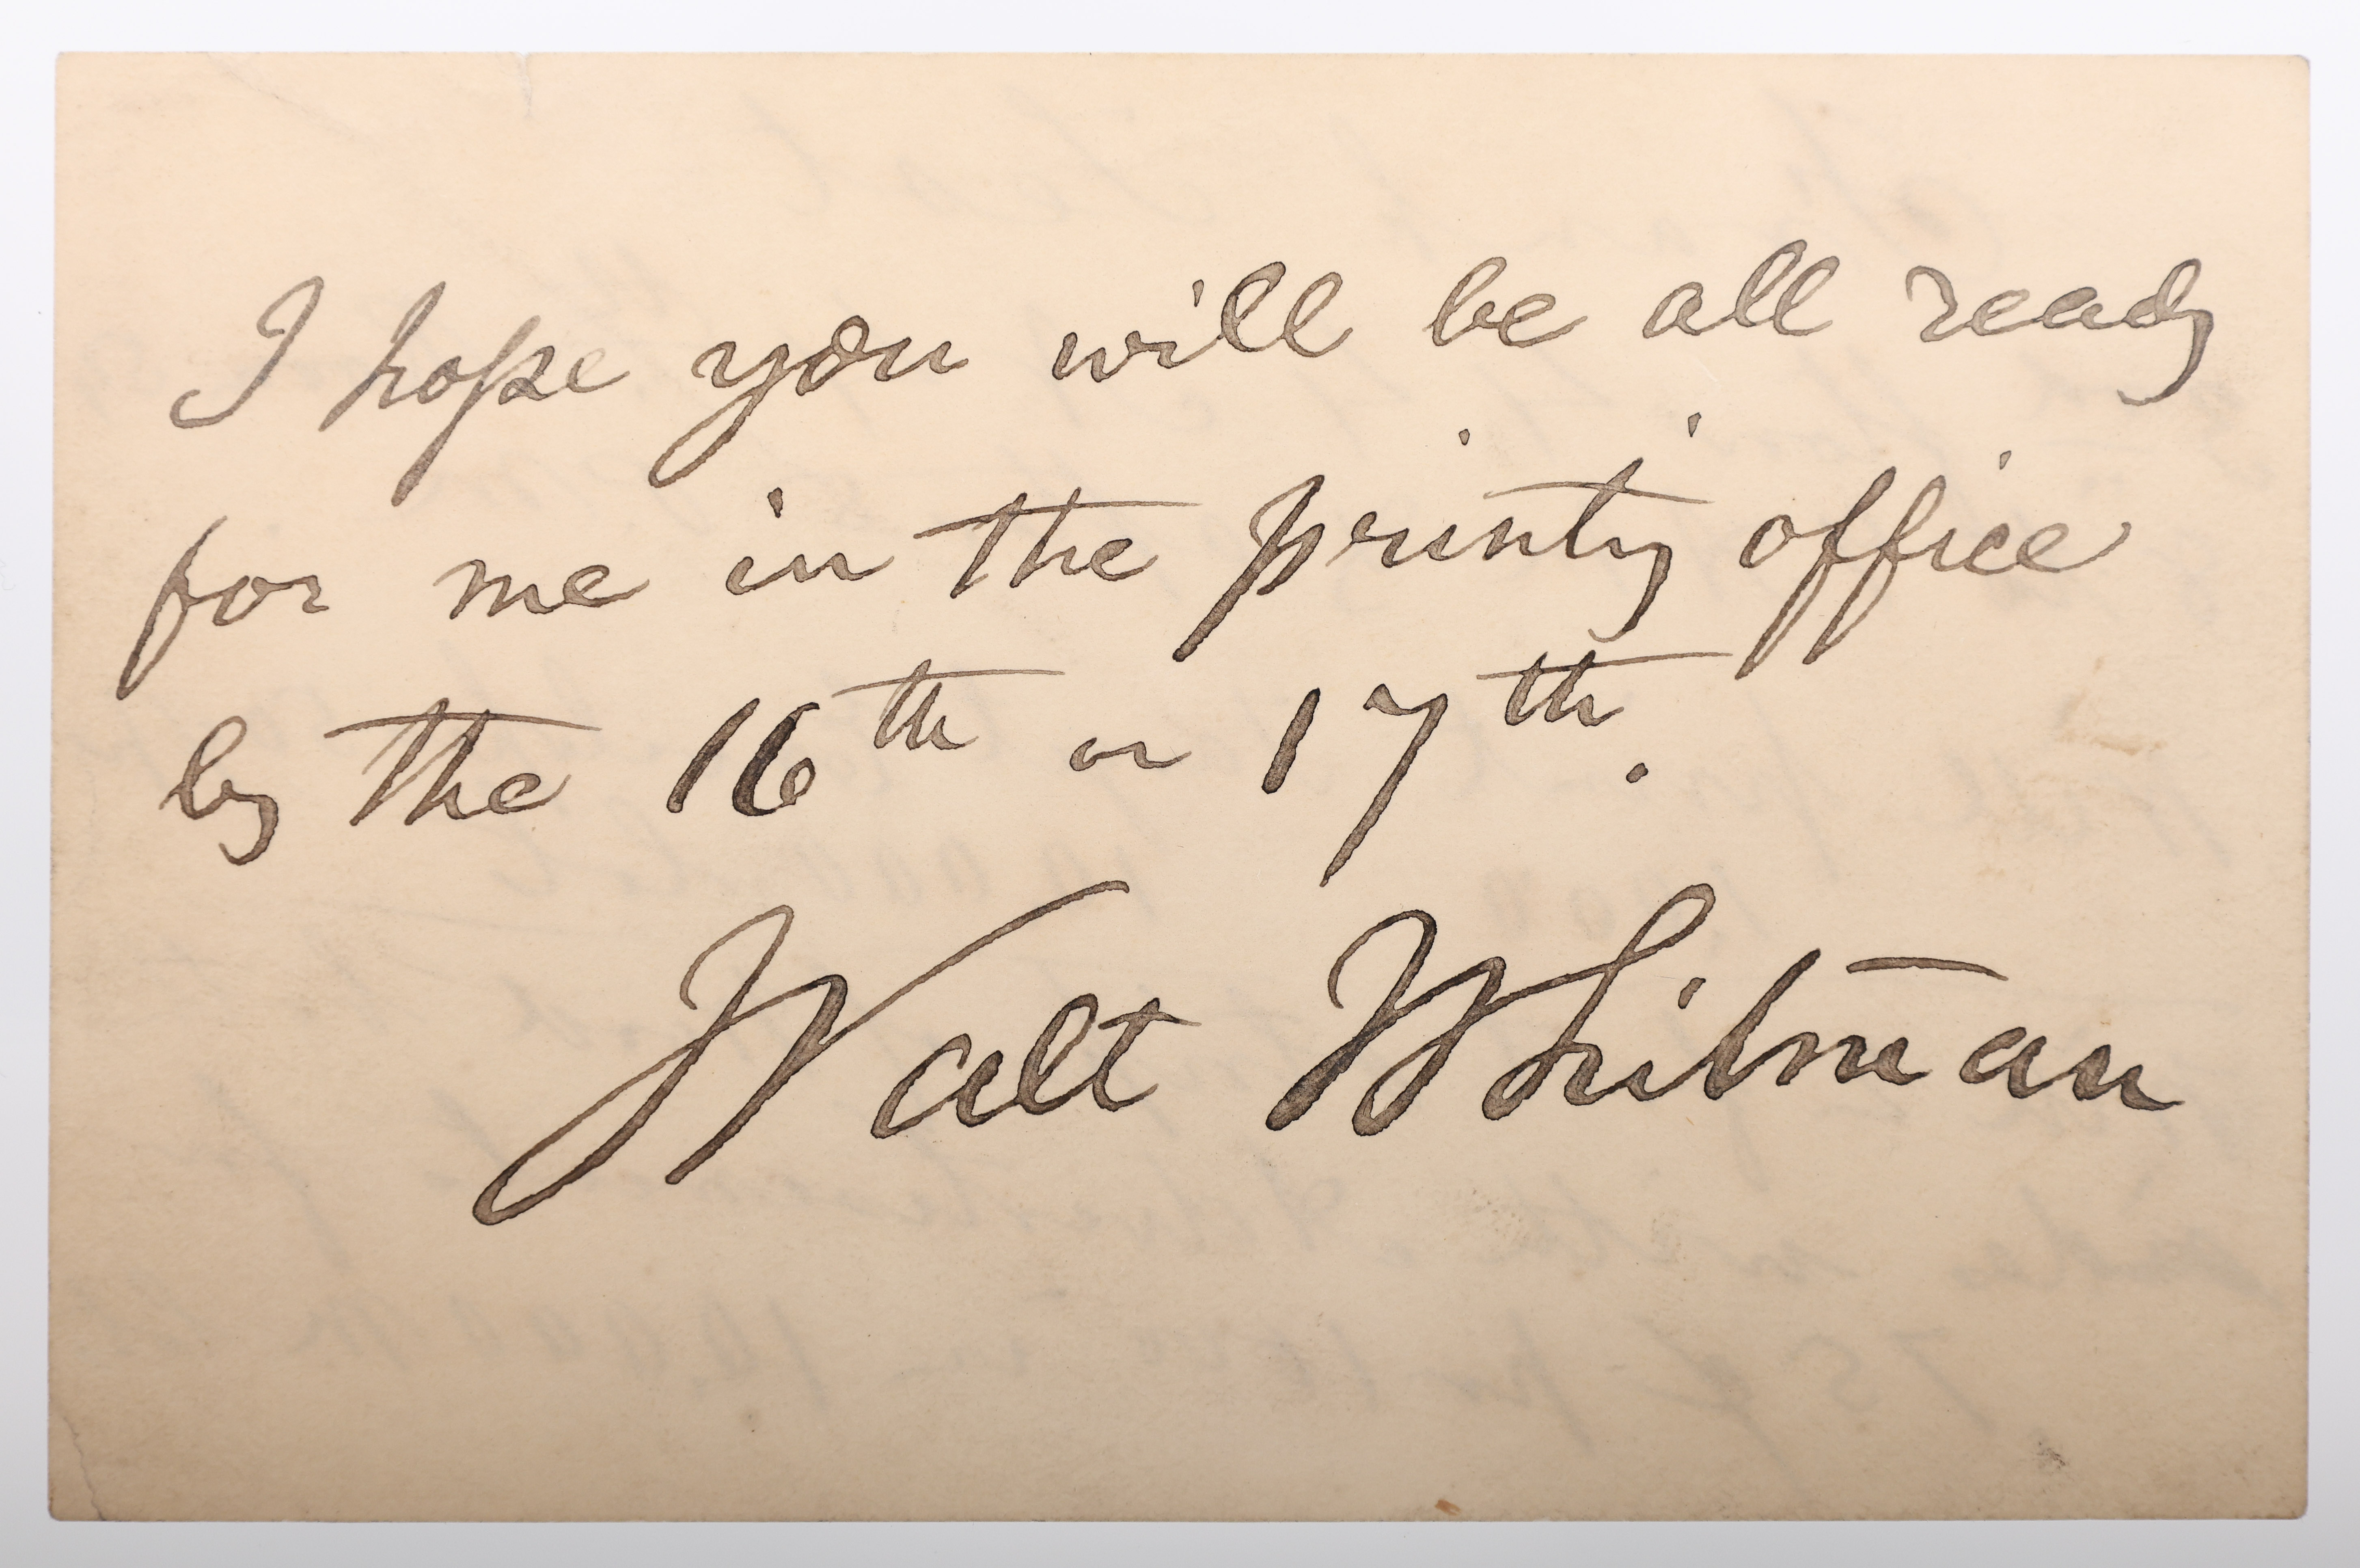 I hope you will be all ready
for me in the printig office
by the 16th or 17th.
Walt Whitman